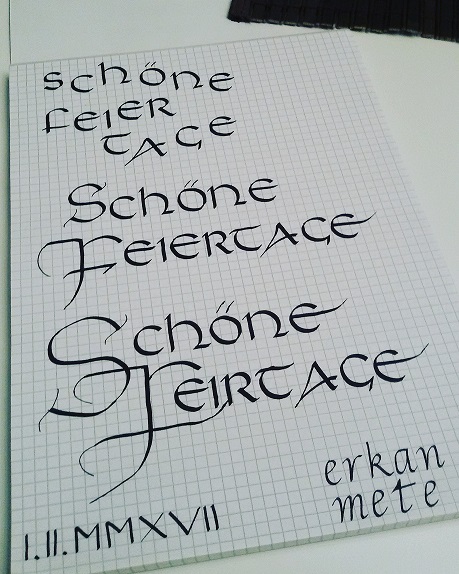 schöne
feier
tage
Schöne
Feiertage
Schöne
Feirtage
erkan
mete
I.II.MMXVII